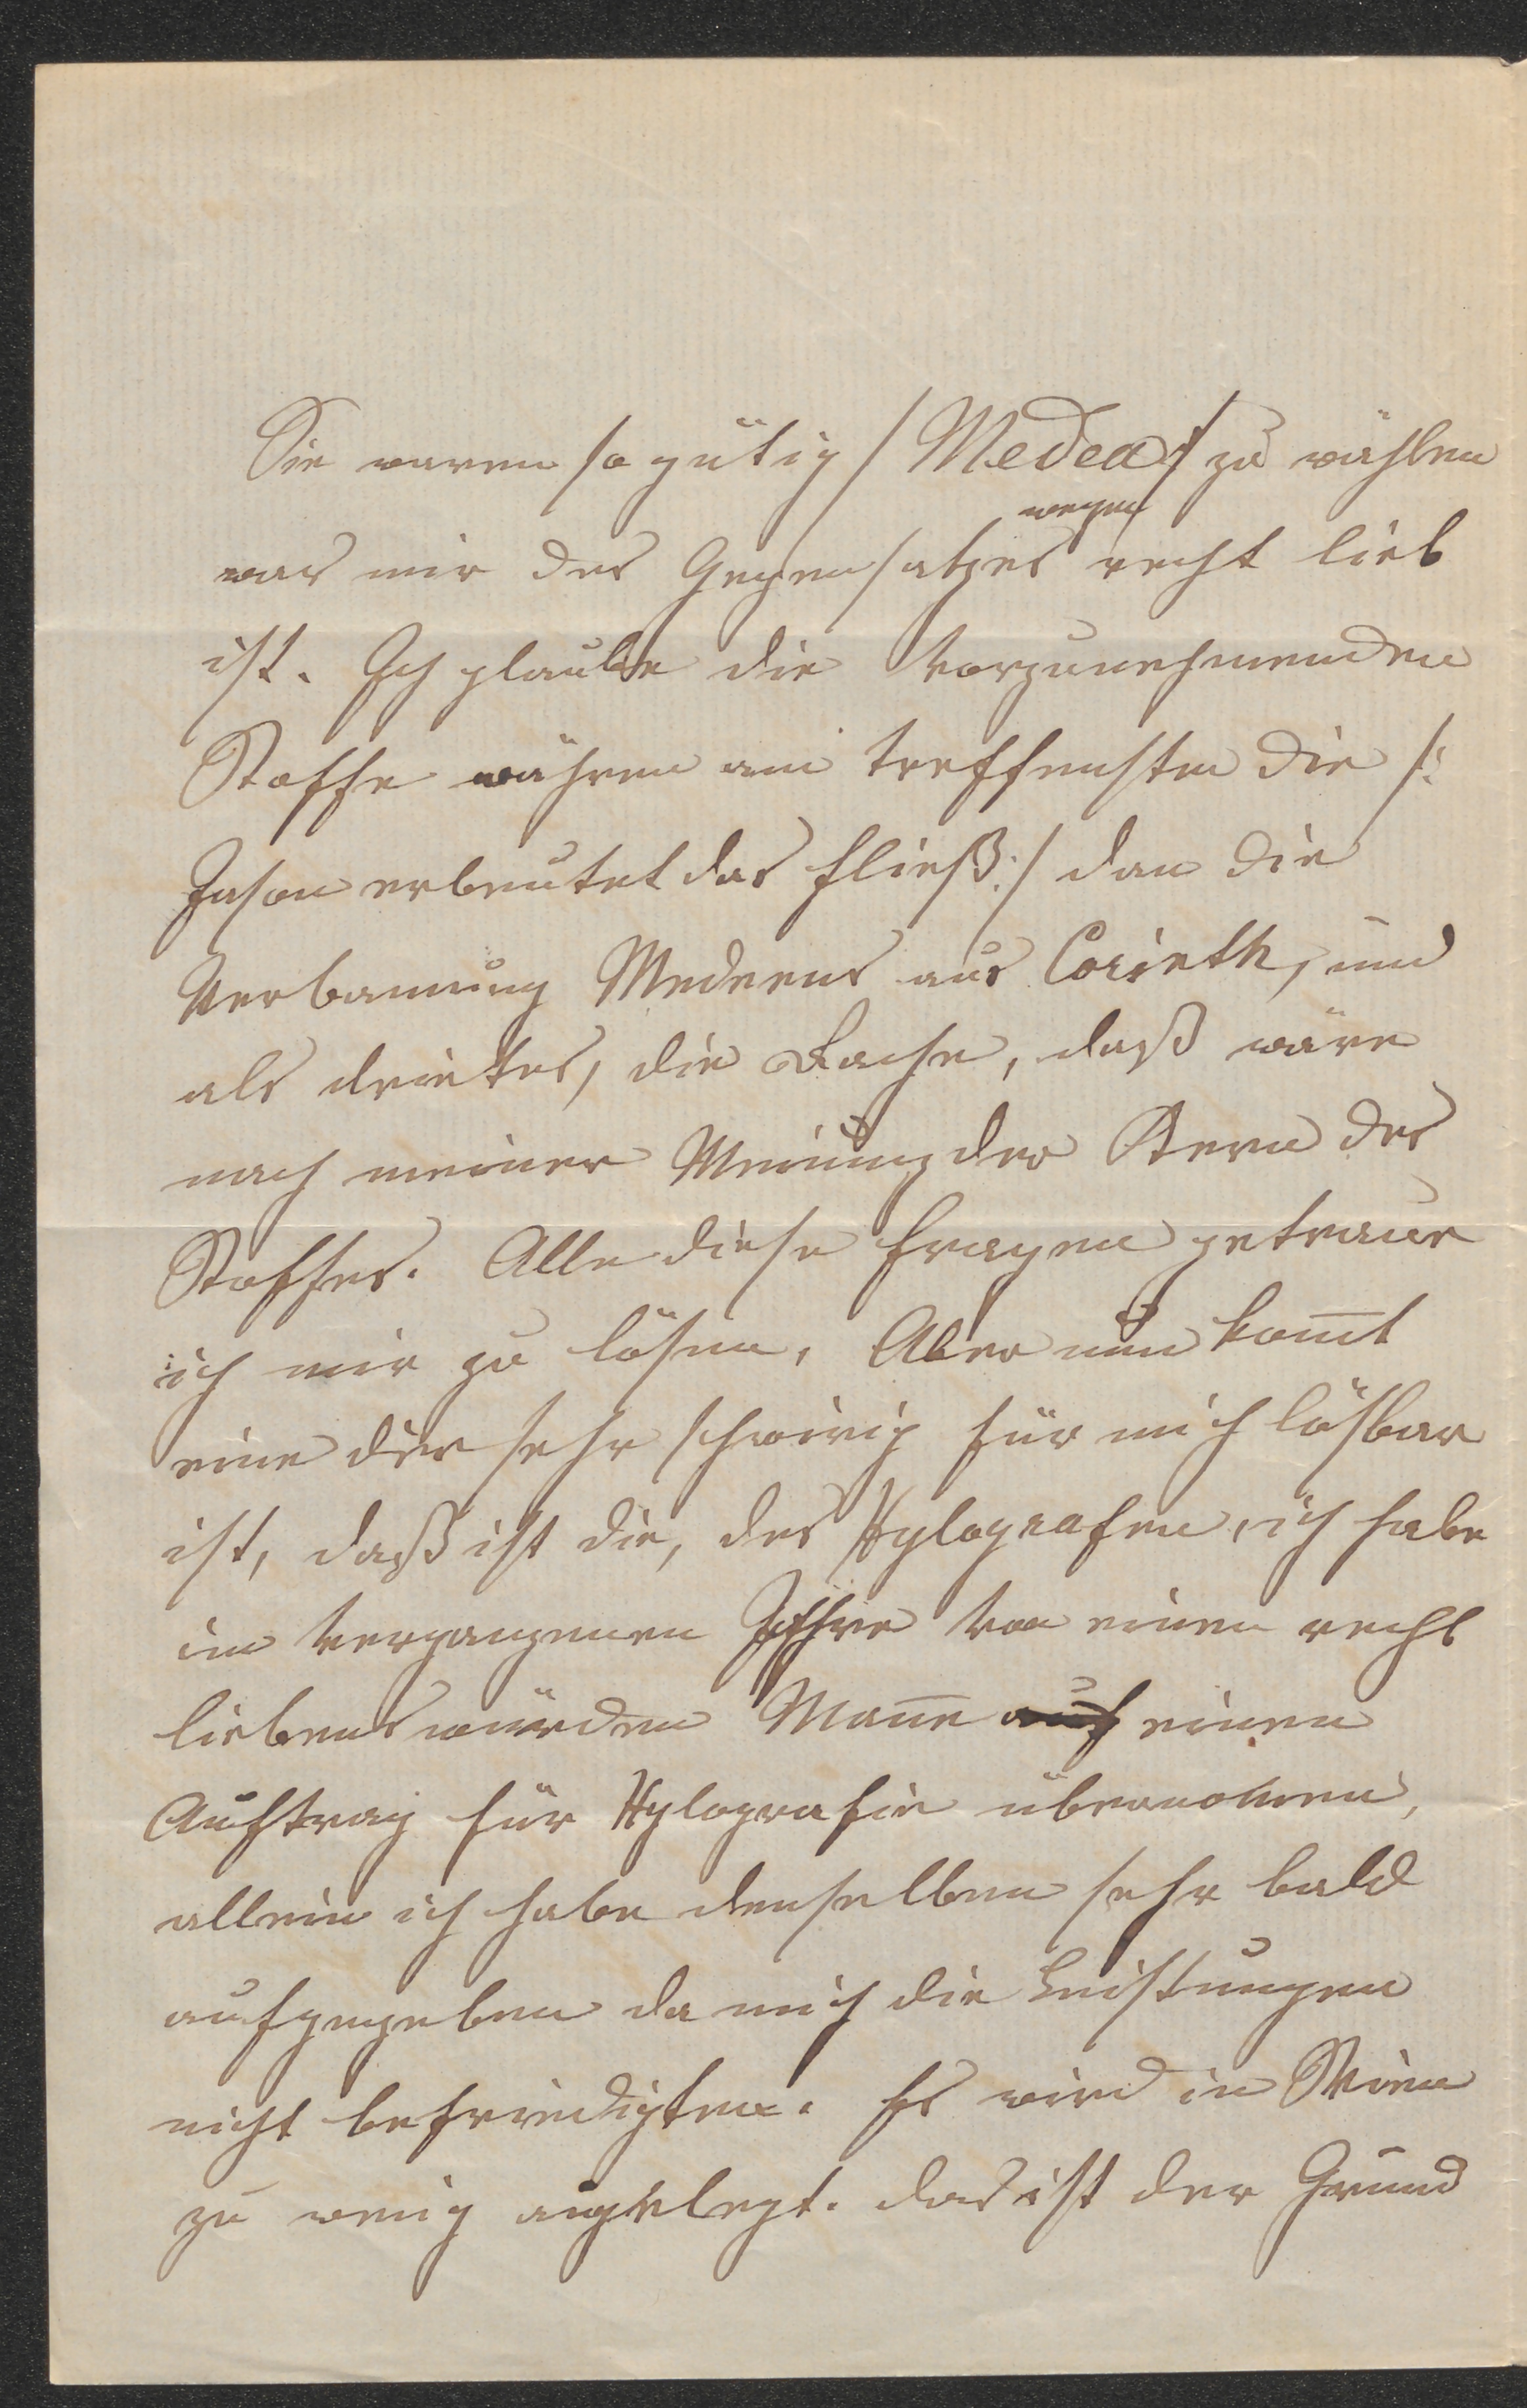 Sie waren so gütig /Medea/ zu wählen
wegen
was mir des Gegensatzes recht lieb
ist. Ich glaube die vorzunehmenden
Stoffe währen am treffensten die /:
Jason erbeutet das Fließ:/ dan die
Verbannung Medeens aus Corinth, und
als drittes, die Rache, daß wäre
nach meiner Meinung der Kern des
Stoffes. Alle diese Fragen getraue
ich mir zu lösen, Aber nun kom̅t
eine die sehr schwirig für mich lösbar
ist, daß ist die, des Xylografen, ich habe
im vergangenen Jahre von einen recht
liebenswürden Man̅e auf einen
Auftrag für Xylografie übernommen,
allein ich habe denselben sehr bald
aufgegeben da mich die Leistungen
nicht befriedigten. Es wird in Wien
zu wenig angelegt. das ist der Grund